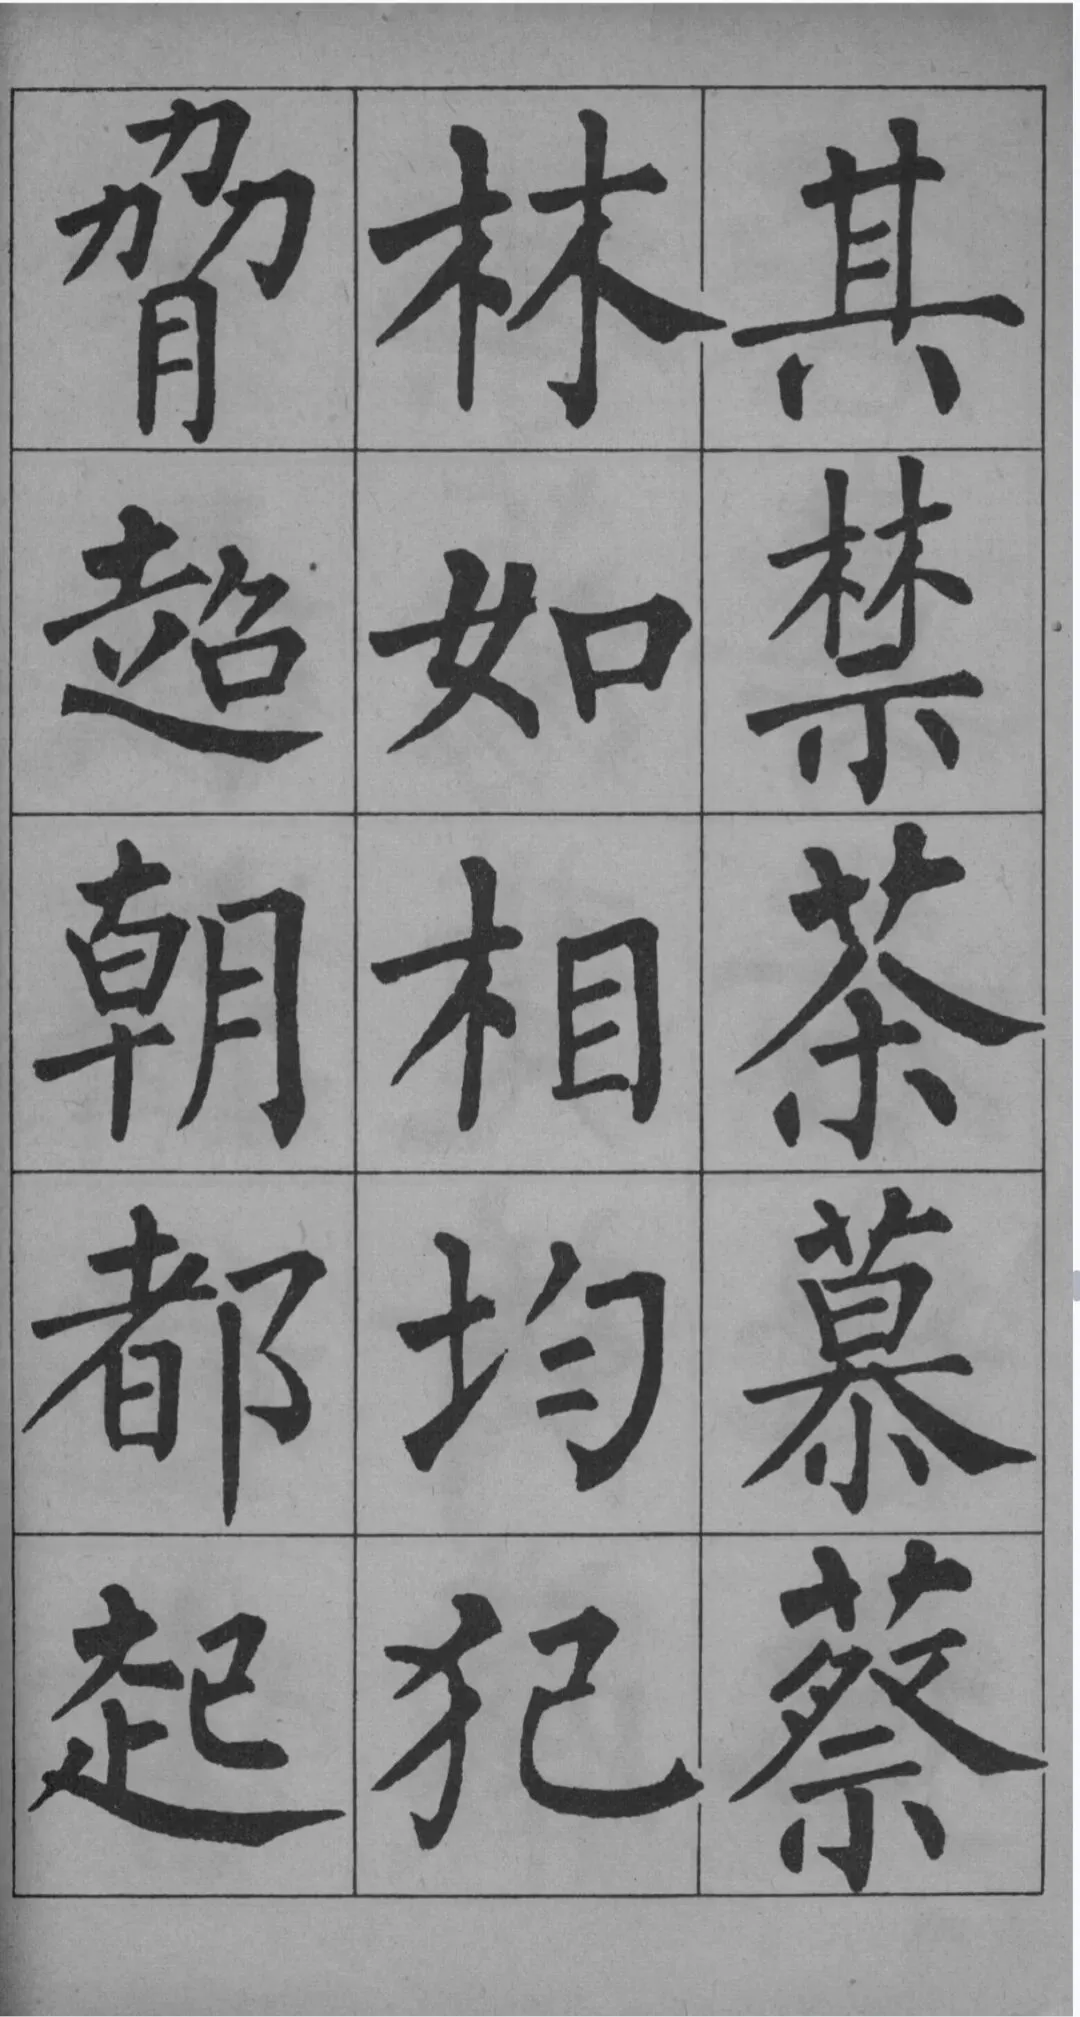 其禁茶慕蔡
林如相均犯
脅超朝都起